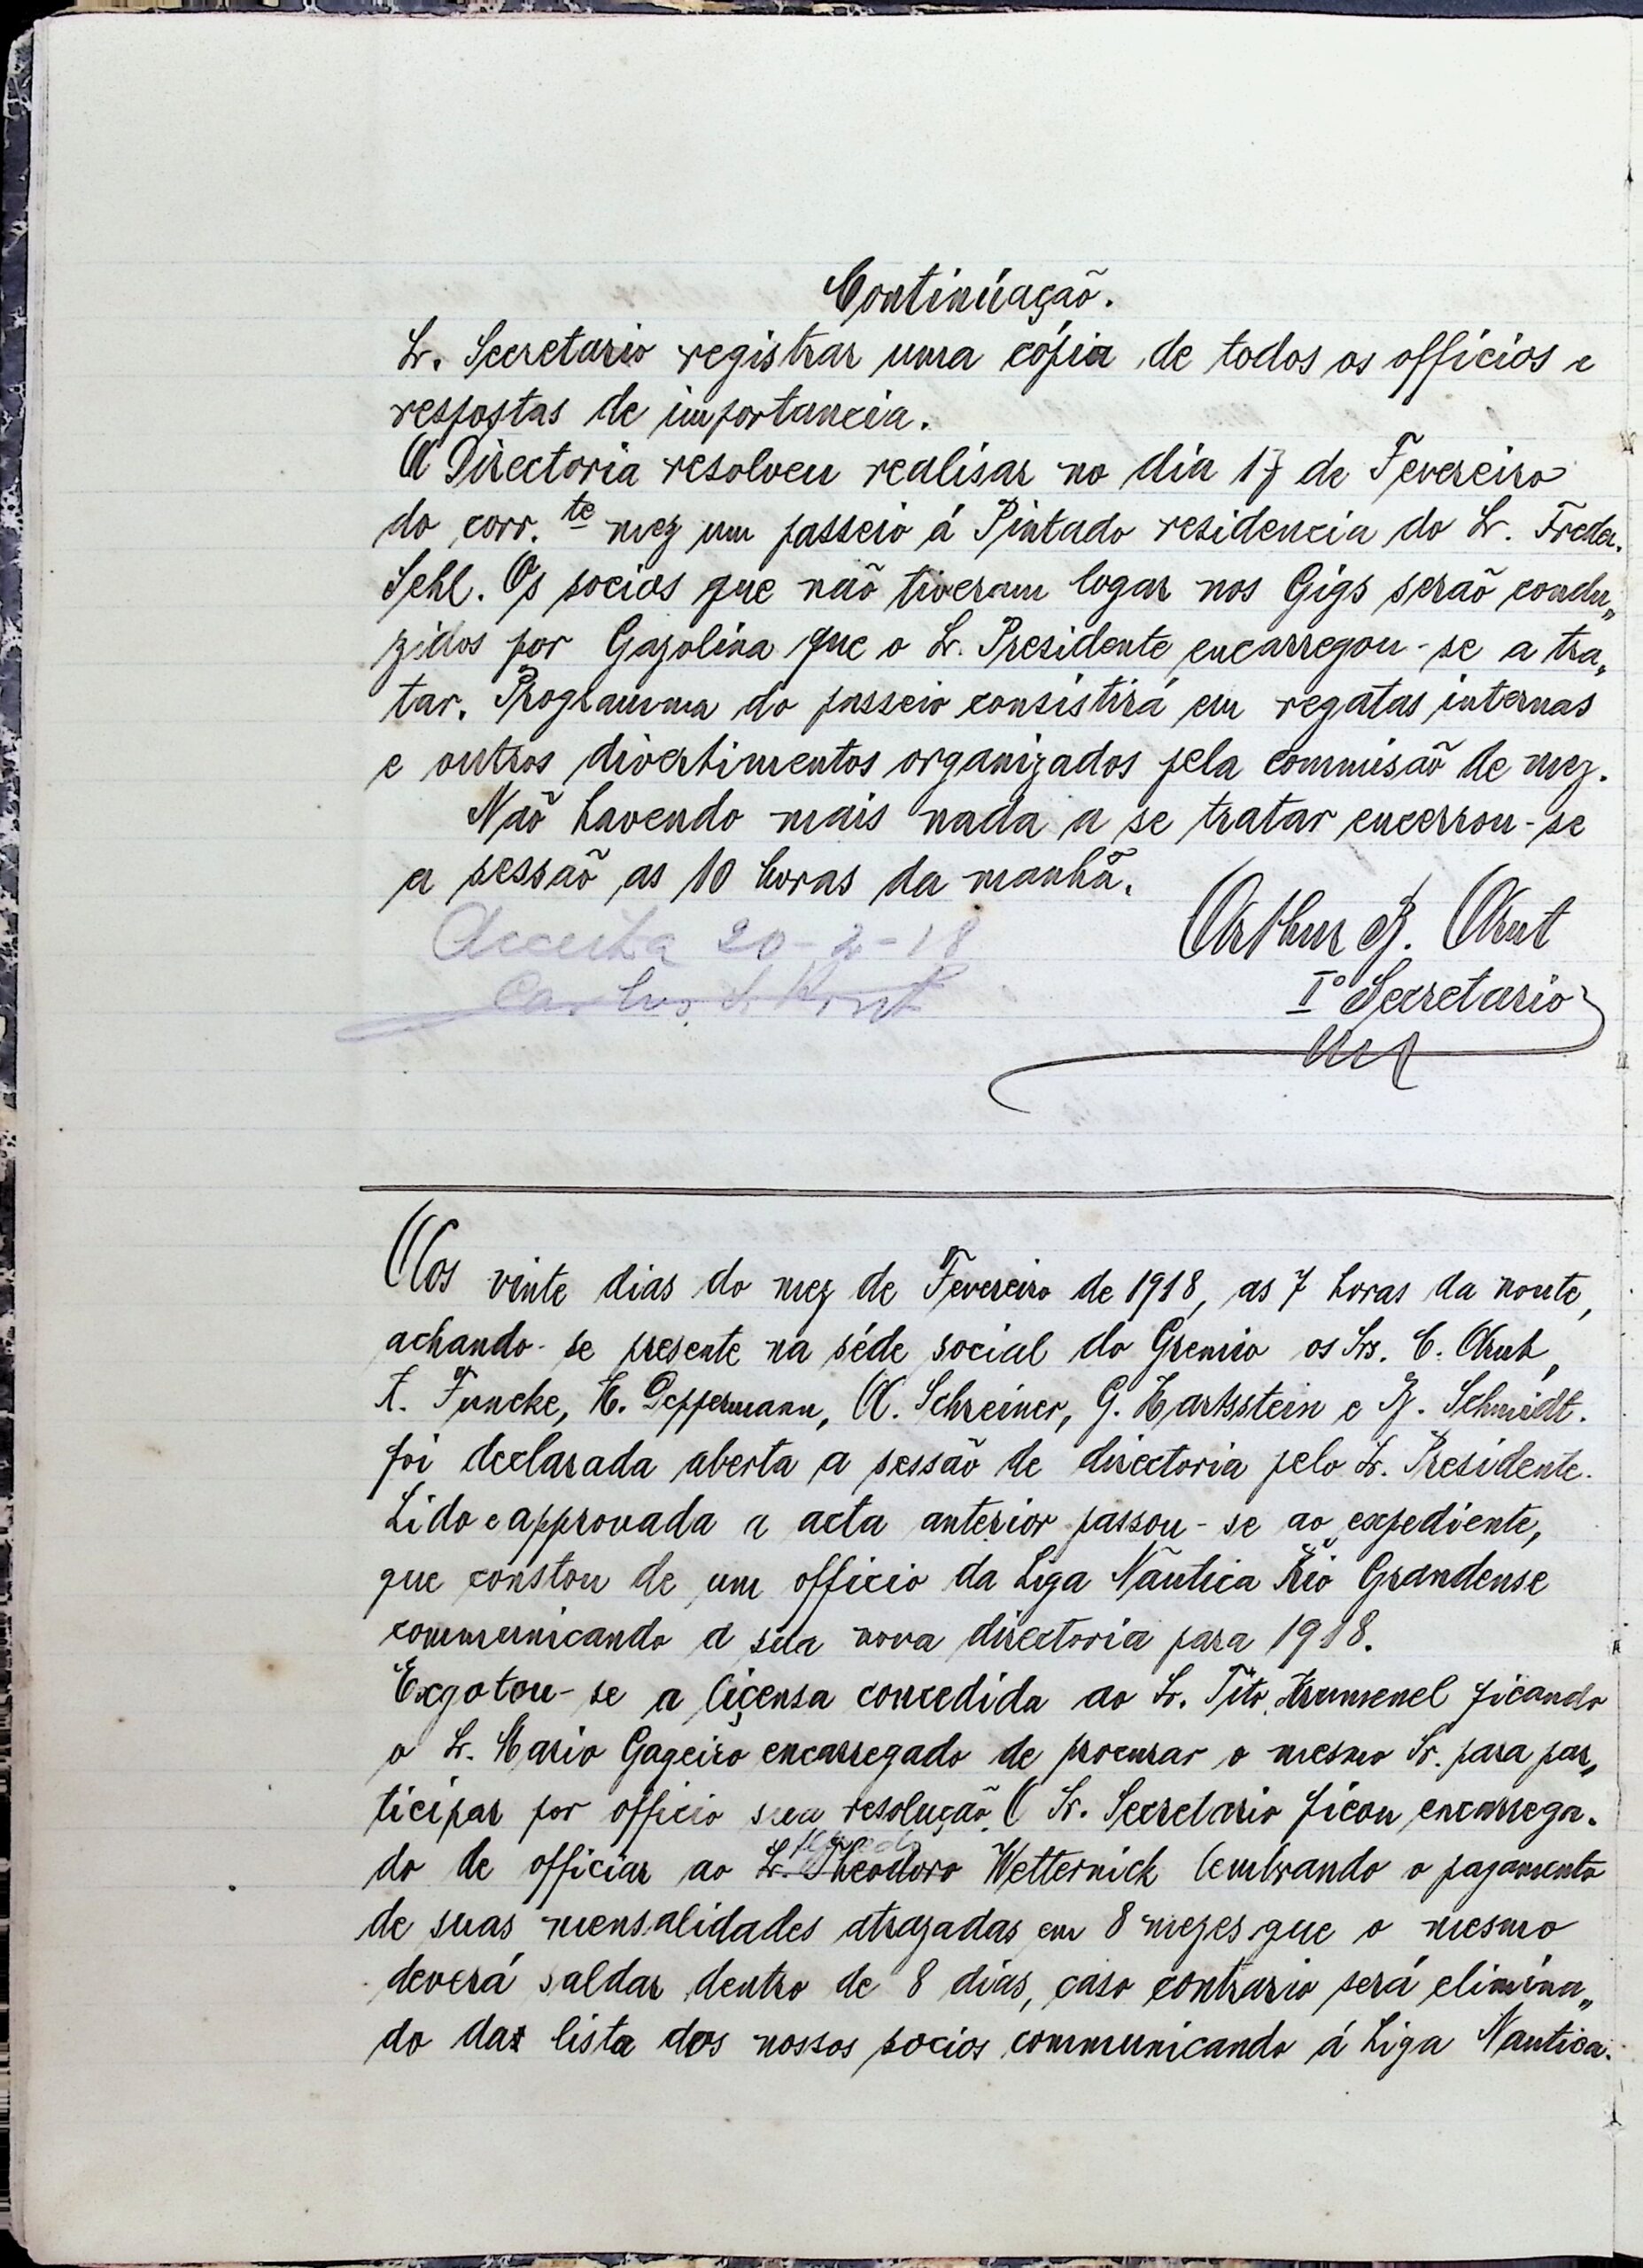 Continúação.
Sr. Secretario registrar uma cópia de todos os officios e
respostas de importancia.
A Directoria resolveu realisar no dia 17 de Fevereiro
do corr.te mez um passeio á Pintado residencia do Sr. Feder.
Sehl. Os socios que não tiveram logar nos Gigs serão condu„
zidos por Gazolina que o Sr. Presidente encarregou-se a tra„
tar. Programma do passeio consistirá em regatas internas
e outros divertimentos organizados pela commisão de mez.
Não havendo mais nada a se tratar encerrou-se
a sessão as 10 horas da manhã.
Acceita 20-2-18
Arthur B. Arnt
Iº Secretario
Aos vinte dias do mez de Fevereiro de 1918, as 7 horas da noute,
achando-se presente na séde social do Gremio os Srs. C. Arnt,
F. Funcke, H. Deppermann, A. Schreiner, G. Hartsstein e B. Schmidt.
foi declarada aberta a sessão de directoria pelo Sr. Presidente.
Lido e approvada a acta anterior passou-se ao expediente,
que constou de um officio da Liga Náutica Rio Grandense
communicando a sua nova directoria para 1918.
Exgotou-se a liçensa concedida ao Sr. Tito ficando
o Sr. Mario Gageiro encarregado de procurar o mesmo Sr. para par„
ticipar por officio sua resolução. O Sr. Secretario ficou encarrega.
do de officiar ao Sr. Theodoro Wetternick lembrando o pagamento
de suas mensalidades atrazadas em 8 mezes que o mesmo
deverá saldar dentro de 8 dias, caso contrario será elimina„
do da lista dos nossos socios communicando á Liga Nautica.